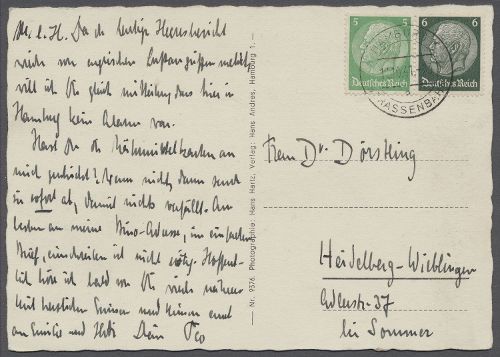 M. l. H. Da der heutige Heeresbericht
wieder von englischen Luftangriffen meldet
will ich Dir gleich mitteilen dass hier in
Hamburg kein Alarm war.
Hast Du die Nährmittelkarten an
mich geschickt? Wenn nicht, dann sende
sie sofort ab, damit nichts verfällt. Am
besten an meine Büro-Adresse, im einfachen
Brief, einschreiben ist nicht nötig. Hoffent-
lich höre ich bald von Dir wieder näheres
Mit herzlichen Grüssen und Küssen
an und Dein
Nr. 9576 Photographie: Hans Hartz, Verlag: Hans Andres, Hamburg 1.—
5 5
Deutsches Reich
6 6
Deutsches Reich
HAMBURG
STRASSENBAHN
Frau Dr. Dörstling
Heidelberg-Wieblingen
Adlerstr. 37
bei Sommer